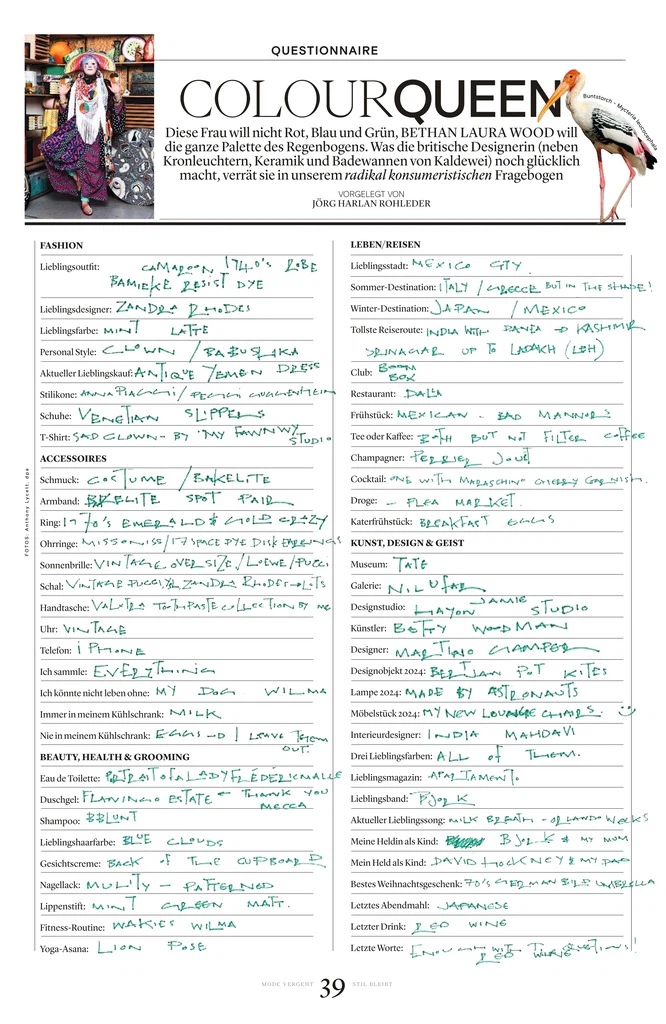 QUESTIONNAIRE
COLOURQUEEN
Buntstorch - Mycteria leucocephala
Diese Frau will nicht Rot, Blau und Grün, BETHAN LAURA WOOD will
die ganze Palette des Regenbogens. Was die britische Designerin (neben
Kronleuchtern, Keramik und Badewannen von Kaldewei) noch glücklich
macht, verrät sie in unserem radikal konsumeristischen Fragebogen
VORGELEGT VON
JÖRG HARLAN ROHLEDER
FASHION
Lieblingsoutfit: CAMAROON 1740's ROBE
RESIST DYE
Lieblingsdesigner: ZANDRA RHODES
Lieblingsfarbe: MINT LATTE
Personal Style: CLOWN / BABUSHKA
Aktueller Lieblingskauf: ANTIQUE YEMEN DRESS
Stilikone: ANNA PIAGGI / PEGGI GUGGENHEIM
Schuhe: VENETIAN SLIPPERS
T-Shirt: SAD CLOWN - BY "MY FAWNWY
STUDIO
ACCESSOIRES
Schmuck: COSTUME / BAKELITE
Armband: BAKELITE SPOT PAIR
Ring: 1770's EMERALD & GOLD CRAZY
Ohrringe: MISSONISS / 17 SPACE PYE DISK EARRINGS
Sonnenbrille: VINTAGE OVERSIZE / LOEWE / PUCCI
Schal: VINTAGE PUCCI, & ZANDRA RHODES - LOTS
Handtasche: VALXTRA TOOTHPASTE COLLECTION BY ME
Uhr: VINTAGE
Telefon: iPHONE
Ich sammle: EVERYTHING
Ich könnte nicht leben ohne: MY DOG WILMA
Immer in meinem Kühlschrank: MILK
Nie in meinem Kühlschrank: EGGS → I LEAVE THEM
OUT.
BEAUTY, HEALTH & GROOMING
Eau de Toilette: PORTRAIT of A LADY FRÉDERIC MALLE
Duschgel: FLAMINGO ESTATE ← THANK YOU
MECCA
Shampoo: BBLUNT
Lieblingshaarfarbe: BLUE CLOUDS
Gesichtscreme: BACK of THE CUPBOARD
Nagellack: MULTY - PATTERNED
Lippenstift: MINT GREEN MATT.
Fitness-Routine: WAKIES WILMA
Yoga-Asana: LION POSE
FOTOS: Anthony Lycett, dpa
LEBEN/REISEN
Lieblingsstadt: MEXICO CITY
Sommer-Destination: ITALY / GREECE BUT IN THE SHADE!
Winter-Destination: JAPAN / MEXICO
Tollste Reiseroute: INDIA WITH → KASHMIR
SRINAGAR UP TO LADAKH (LEH)
Club: BOOM
BOX
Restaurant: DALLA
Frühstück: MEXICAN - BAD MANNORS
Tee oder Kaffee: BOTH BUT NOT FILTER COFFEE
Champagner: PERRIER JOUËT
Cocktail: ONE WITH MARASCHINO CHERRY GARNISH.
Droge: - FLEA MARKET.
Katerfrühstück: BREAKFAST EGGS
KUNST, DESIGN & GEIST
Museum: TATE
Galerie: NILUFAR
Designstudio: JAMIE
HAYON STUDIO
Künstler: BETTY WOODMAN
Designer: MARTINO GAMPER
Designobjekt 2024: BERTJAN POT KITES
Lampe 2024: MADE BY ASTRONAUTS
Möbelstück 2024: MY NEW LOUNGE CHAIRS. :)
Interieurdesigner: INDIA MAHDAVI
Drei Lieblingsfarben: ALL of THEM.
Lieblingsmagazin: APARTAMENTO
Lieblingsband: BJORK
Aktueller Lieblingssong: MILK BREATH - ORLANDO WEEKS
Meine Heldin als Kind: BJORK & MY MUM
Mein Held als Kind: DAVID HOCKNEY & MY DAD
Bestes Weihnachtsgeschenk: 70's GERMAN UMBRELLA
Letztes Abendmahl: JAPANESE
Letzter Drink: RED WINE
Letzte Worte: ENOUGH WITH THE QUESTIONS!
RED WINE
MODE VERGEHT 39 STIL BLEIBT